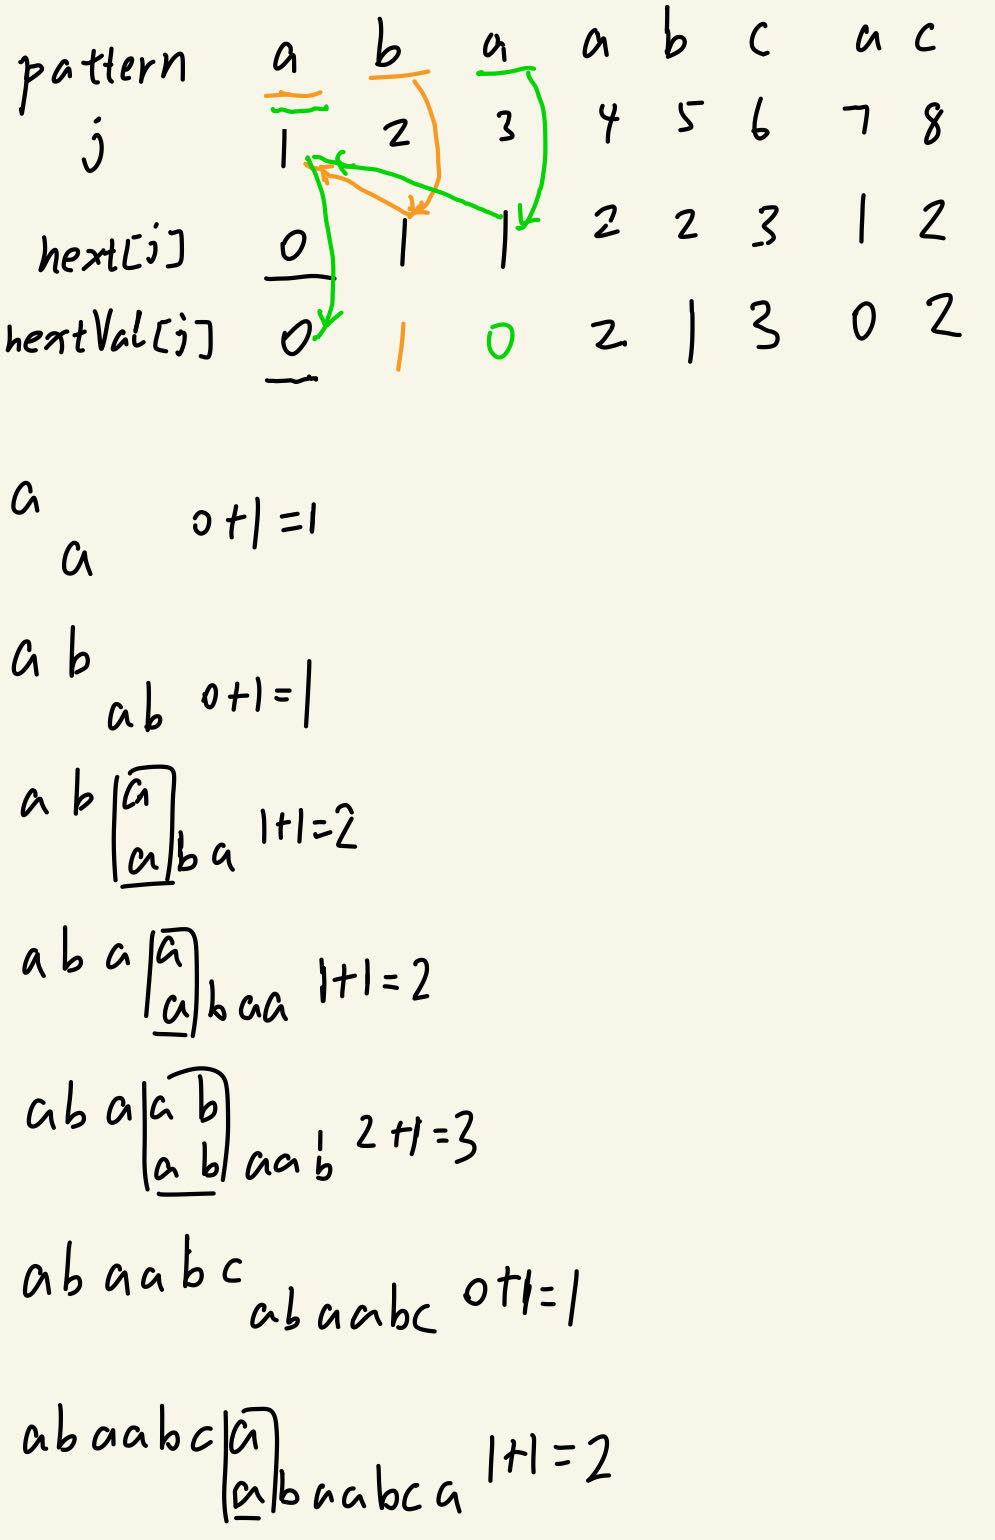 pattern a b a a b c a c
j 1 2 3 4 5 6 7 8
next[j] 0 1 1 2 2 3 1 2
nextVal[j] 0 1 0 2 1 3 0 2
a
a 0+1=1
a b
ab 0+1=1
a b a
a b a 1+1=2
a b a a
a b a a 1+1=2
a b a a b
a b a a b 2+1=3
a b a a b c
a b a a b c 0+1=1
a b a a b c a
a b a a b c a 1+1=2